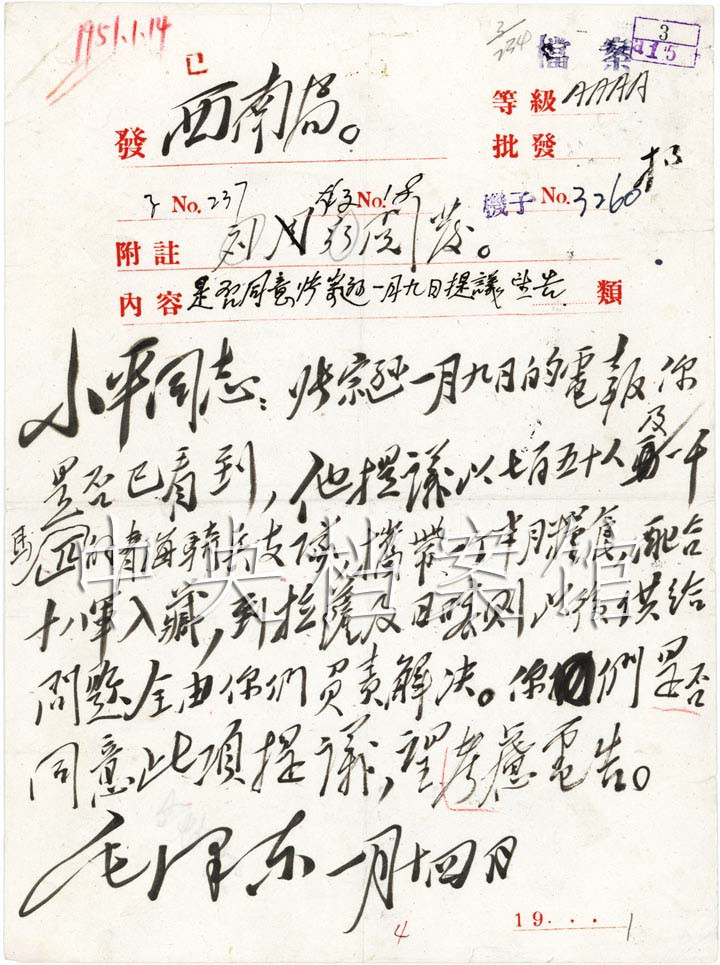 1951.1.14
檔案
3
015
3/234
已
發 西南局。
等級 AAAA
批發
子 No. 237
No. 18
機子 No. 3260
附註
內容 是否同意张宗逊一月九日提議望告 類
小平同志：张宗逊一月九日的電報你
是否已看到，他提議以七百五十人及一千
馬匹的青海騎兵支隊，攜帶 半月糧食，配合
十八軍入藏，到拉薩及日喀则以後供给
問题全由你們負責解决。你們是否
同意此項提議，望考慮電告。
毛泽东 一月十四日
中央档案馆
19...1
4